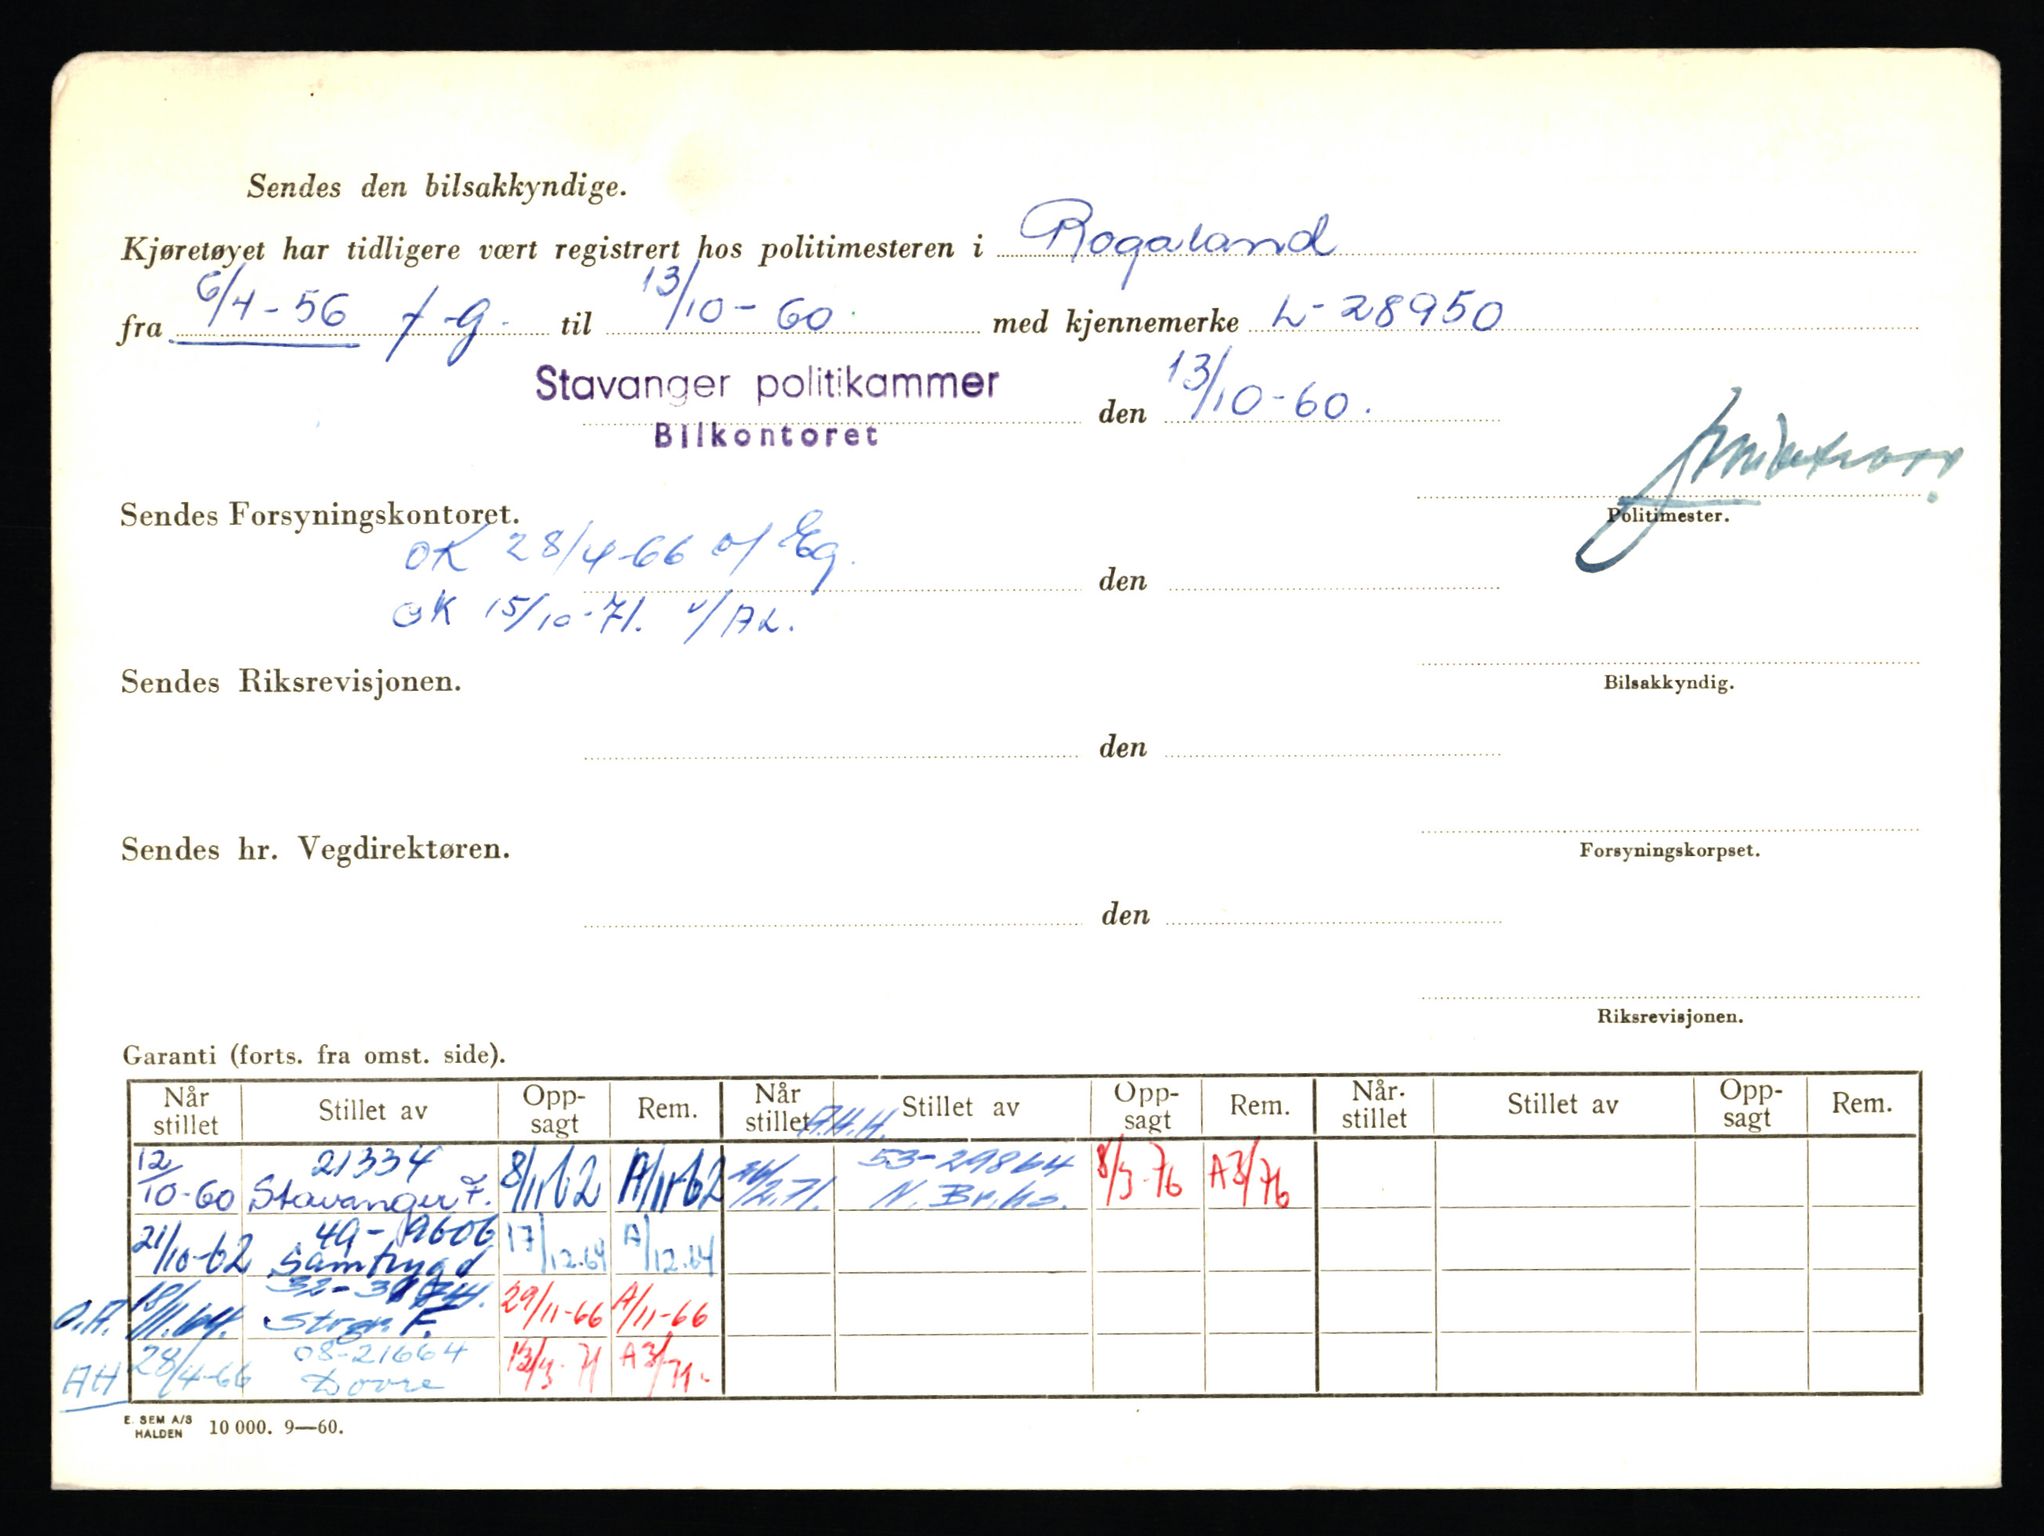 Sendes den bilsakkyndige.
Kjøretøyet har tidligere vært registrert hos politimesteren i Rogaland
fra 6/4-56 f-g. til 13/10-60. med kjennemerke L-28950
Stavanger politikammer den 13/10-60.
Bilkontoret
Politimester.
Sendes Forsyningskontoret.
OK 28/4-66 v/ Eg.
den
OK 15/10-71. v/AL.
Sendes Riksrevisjonen.
Bilsakkyndig.
den
Sendes hr. Vegdirektøren.
Forsyningskorpset.
den
Riksrevisjonen.
Garanti (forts. fra omst. side).
Når stillet Stillet av Opp-sagt Rem. Når stillet Stillet av Opp-sagt Rem. Når. stillet Stillet av Opp-sagt Rem.
A.H.H.
12/10-60 21334 Stavanger F. 8/11-62 A/11-62 2.71. 53-29864 N. Br.ks. 8/3-76 A3/76
21/10-62 49-9606 Samtrygd 17/12.64 A/12.64
O.A. 18/11.64. Strgr. F. 29/11-66 A/11-66
AH 28/4-66 08-21664 Dovre 13/3-71 A3/71.
E. SEM A/S
HALDEN 10 000. 9—60.